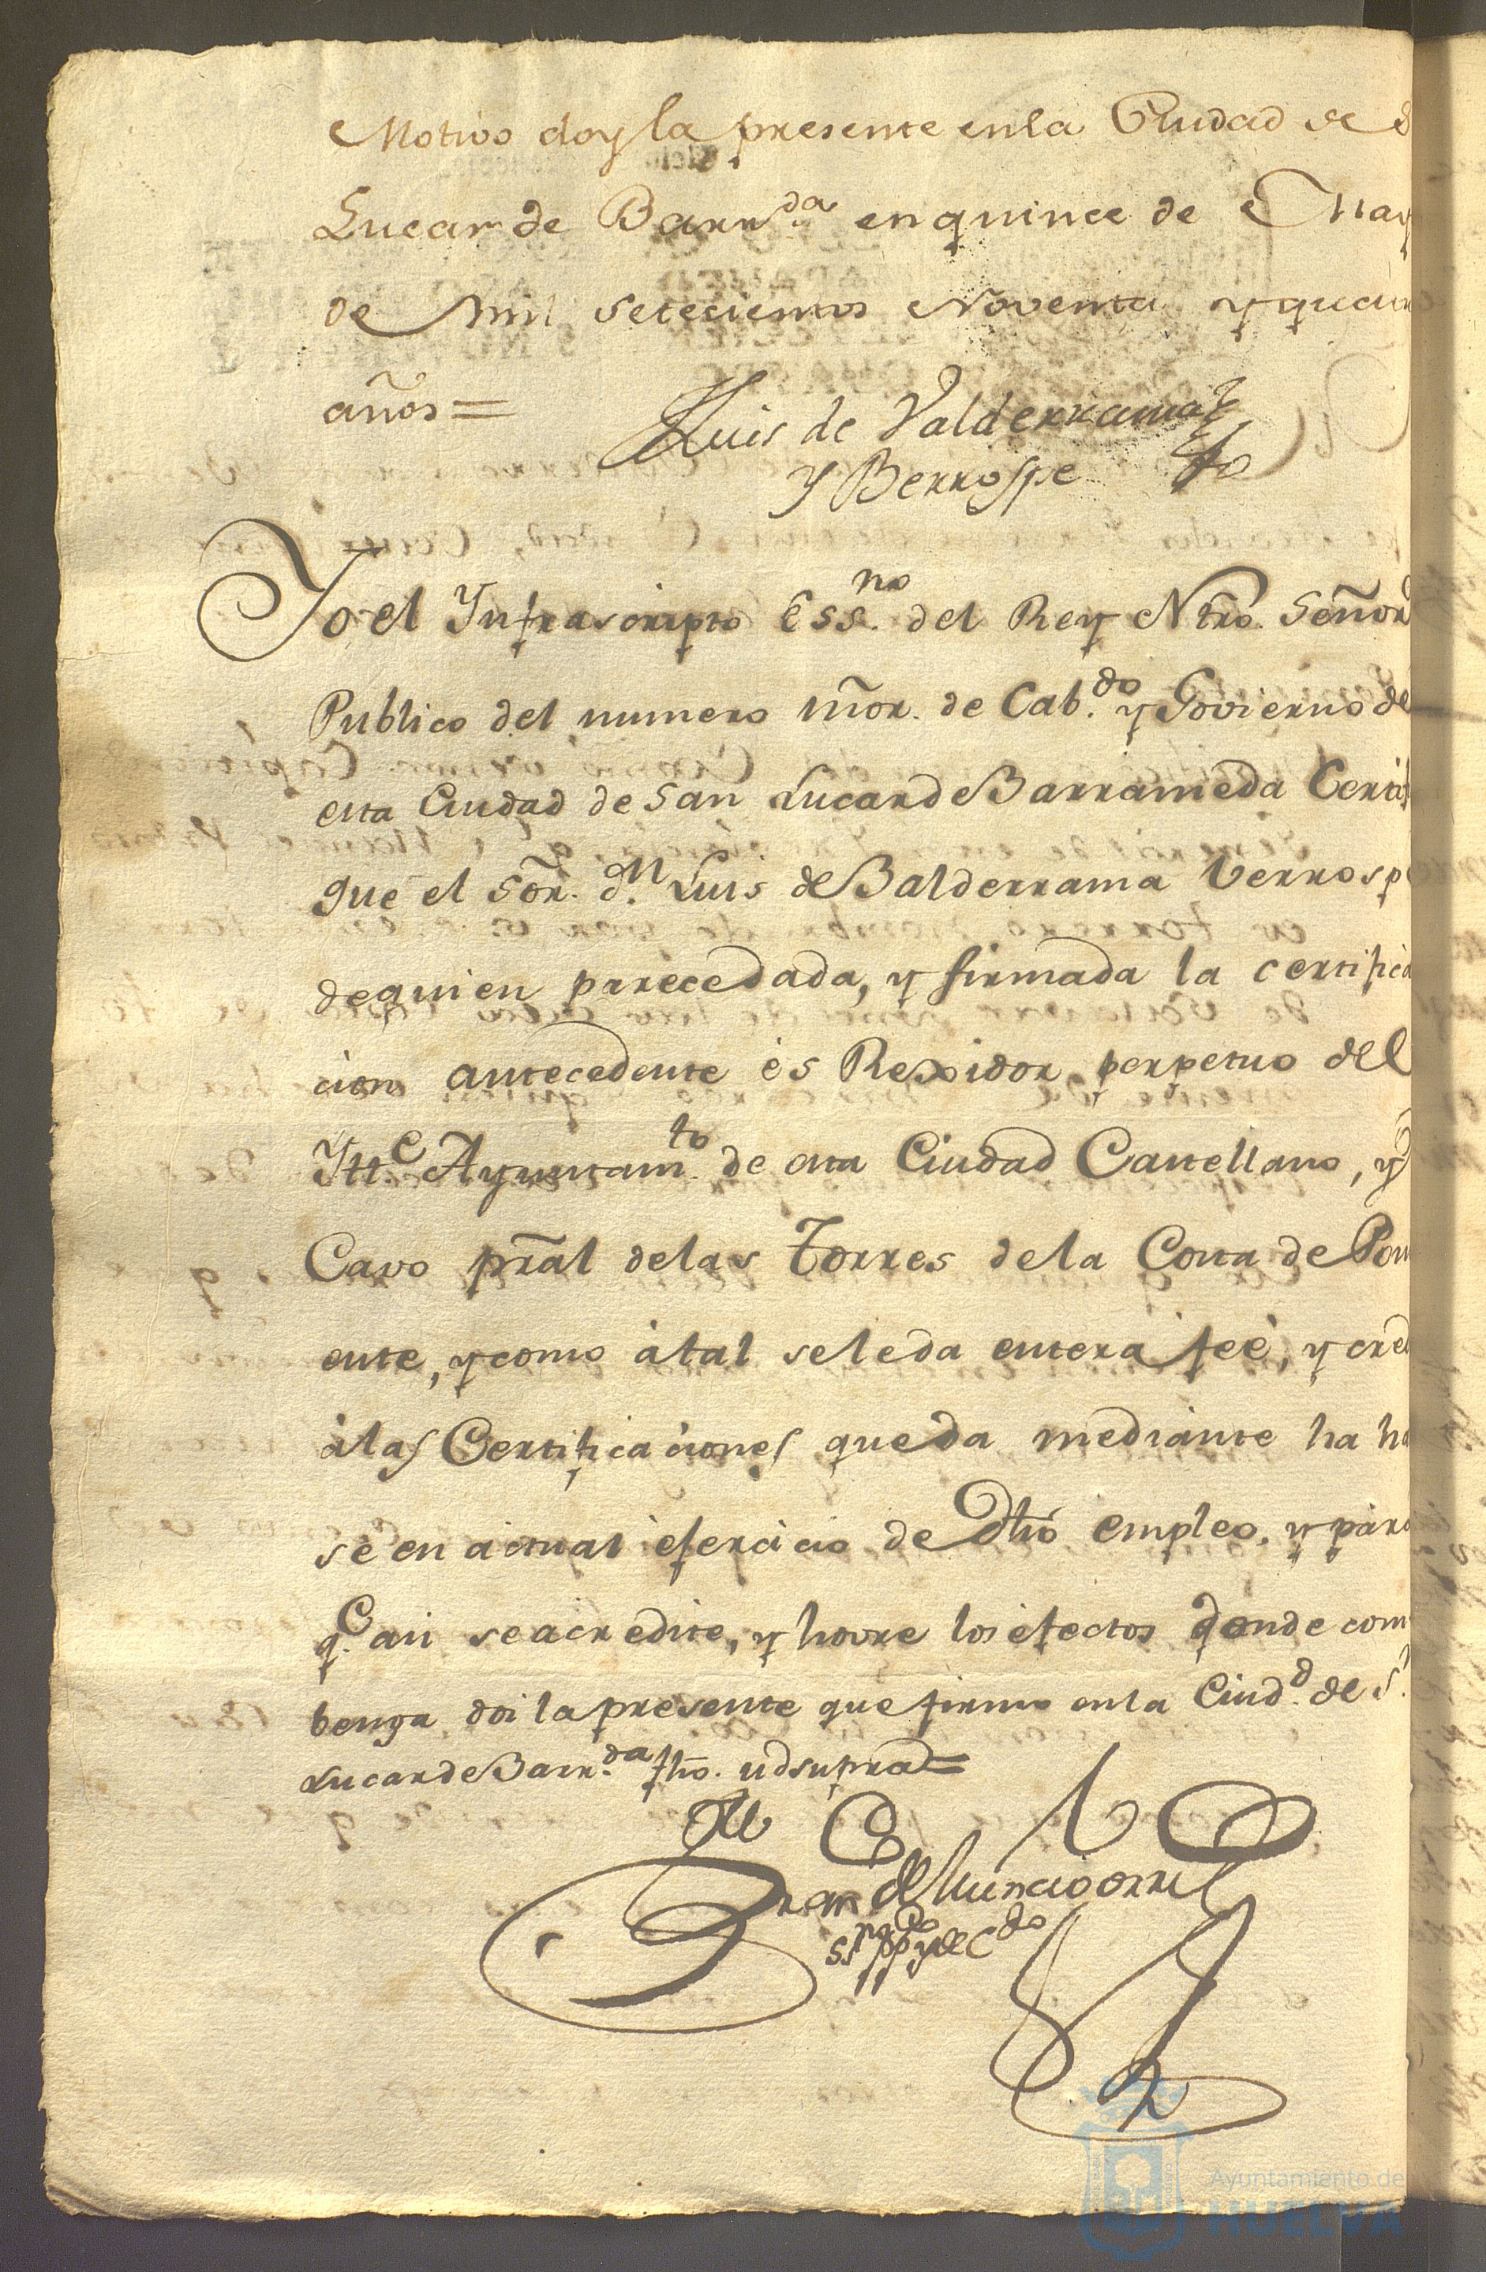 Motivo doy la presente en la Ciudad de S
Lucar de Barr.da en quince de May
de mil setecientos Noventa y quat
años =
Luis de Valderrama
y Berrospe
Yo el Ynfrascripto Ess.no del Rey Ntro. Señor
Publico del numero mõr. de Cab.do y Govierno de
esta Ciudad de San Lucar de Barrameda Certif
que el Sõr. d.n Luis de Balderrama Verrospe
de quien parece dada, y firmada la certifica
cion antecedente és Rexidor perpetuo del
Ytt.e Ayuntam.to de esta Ciudad Castellano, y
Cavo prãl de las Torres de la Costa de Pon
ente, y como á tal se le da entera feé, y cred
á las Certificaciones que da mediante ha ha
se en actual éjercicio de dho empleo, y para
q.e asi se acredite, y hovre los éfectos donde com
benga doi la presente que firmo en la Ciud.d de S.n
Lucar de Barr.da fho. ud supra =
Ayuntamiento de
HUELVA